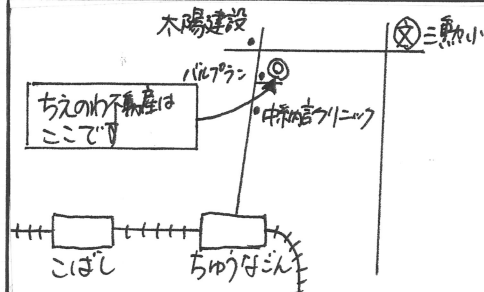 太陽建設
三勲小
バルプラン
ちえのわ不動産は
ここです
中納言クリニック
こばし
ちゅうなごん